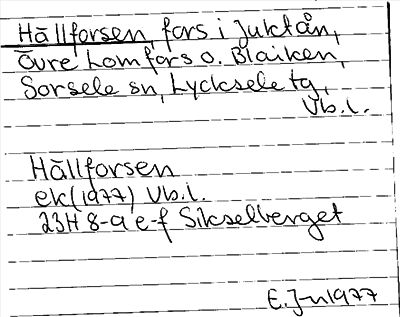 Hällforsen, fors i Juktån,
Övre Lomfors o. Blaiken,
Sorsele sn, Lycksele tg,
Vb.l.
Hällforsen
ek (1977) Vb.l.
23H 8-9 e-f Sikselberget
E.Jn 1977